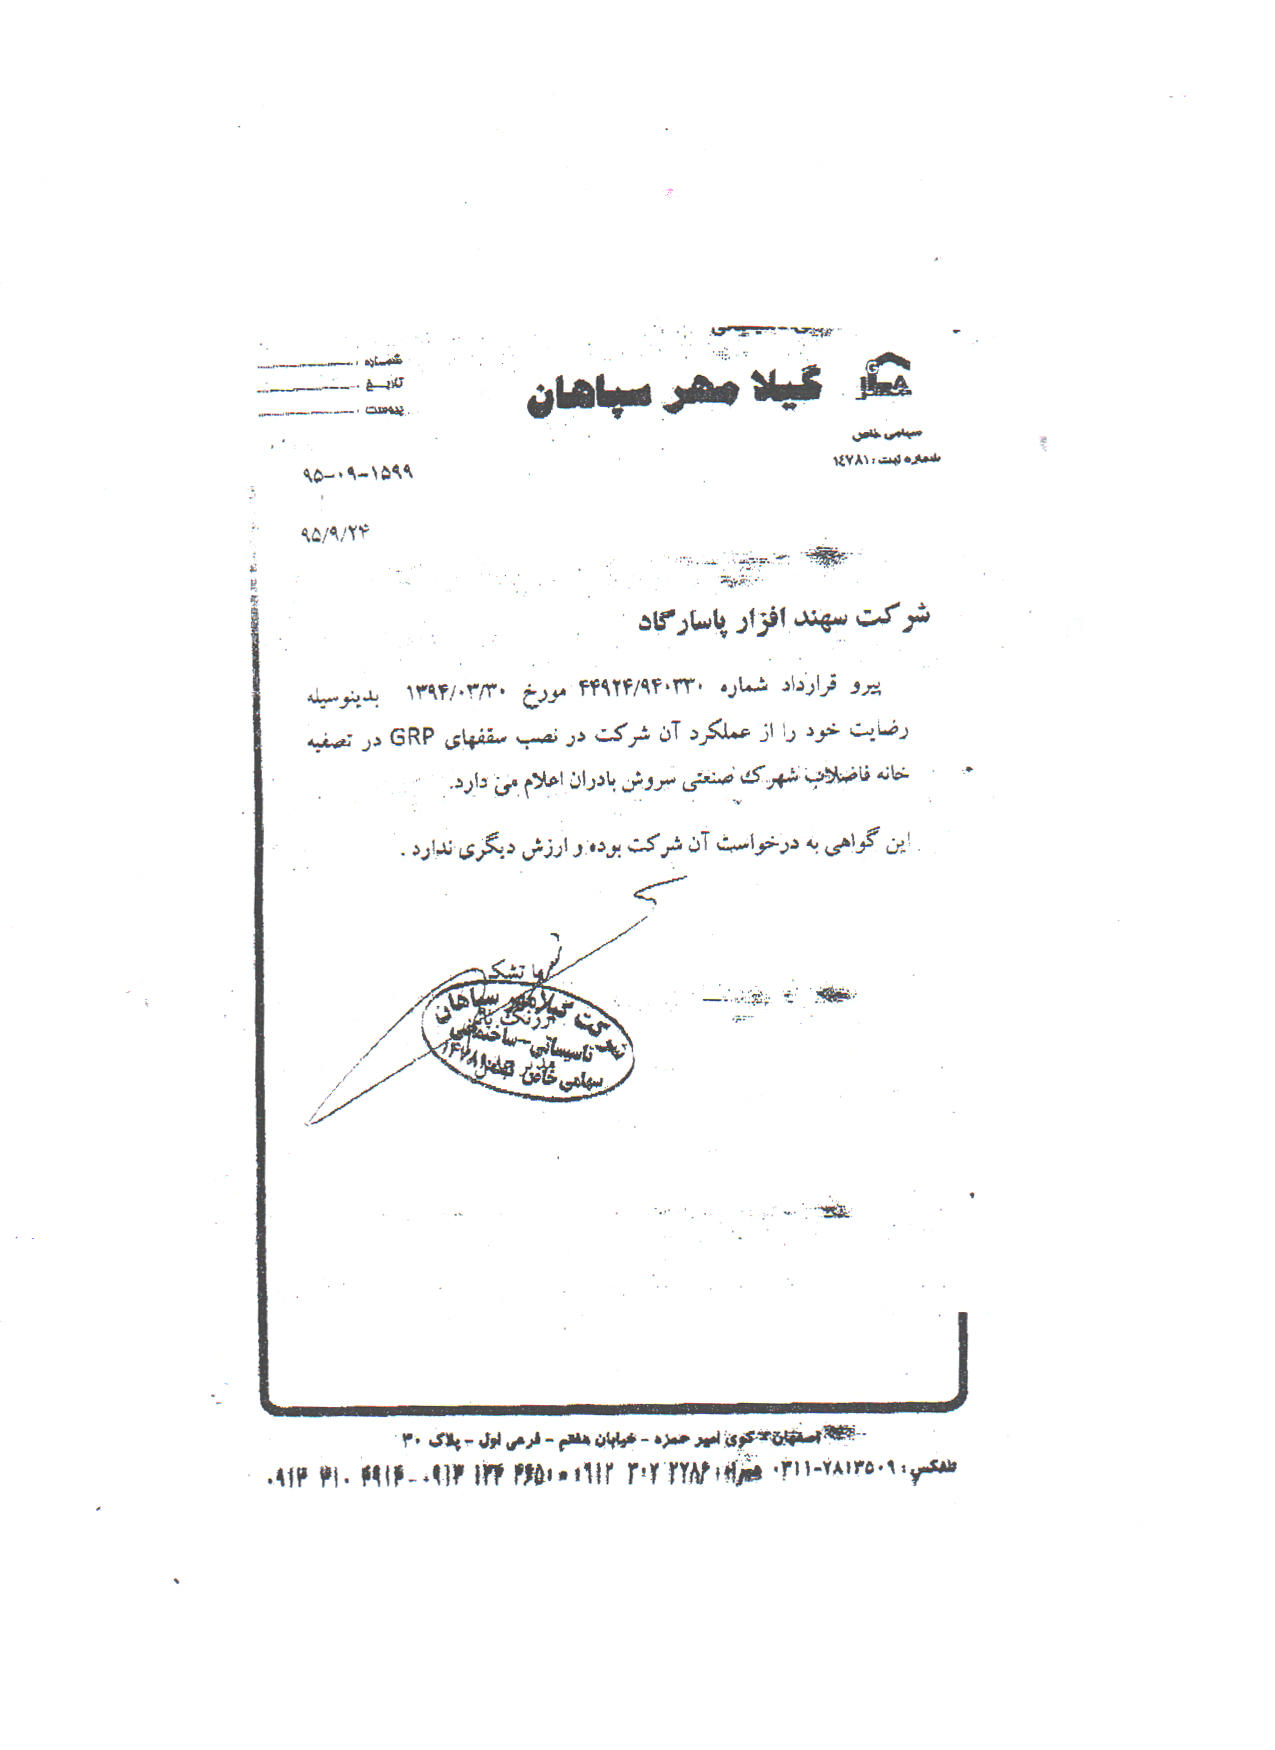 گیلا مهر سپاهان
سهامی خاص
شماره ثبت : ۱٤۷۸۱
شماره :
تاریخ :
پیوست :
۹۵-۰۹-۱۵۹۹
۹۵/۹/۲۴
شرکت سهند افزار پاسارگاد
پیرو قرارداد شماره ۴۴۹۲۴/۹۴۰۳۳۰ مورخ ۱۳۹۴/۰۳/۳۰ بدینوسیله
رضایت خود را از عملکرد آن شرکت در نصب سقفهای GRP در تصفیه
خانه فاضلاب شهرک صنعتی سروش بادران اعلام می دارد.
این گواهی به درخواست آن شرکت بوده و ارزش دیگری ندارد .
با تشکر
شرکت گیلامهر سپاهان
تاسیساتی-ساختمانی
سهامی خاص
اصفهان - کوی امیر حمزه - خیابان هفتم - فرعی اول - پلاک ۳۰
تلفکس : ۰۳۱۱-۷۸۱۳۵۰۹ همراه :